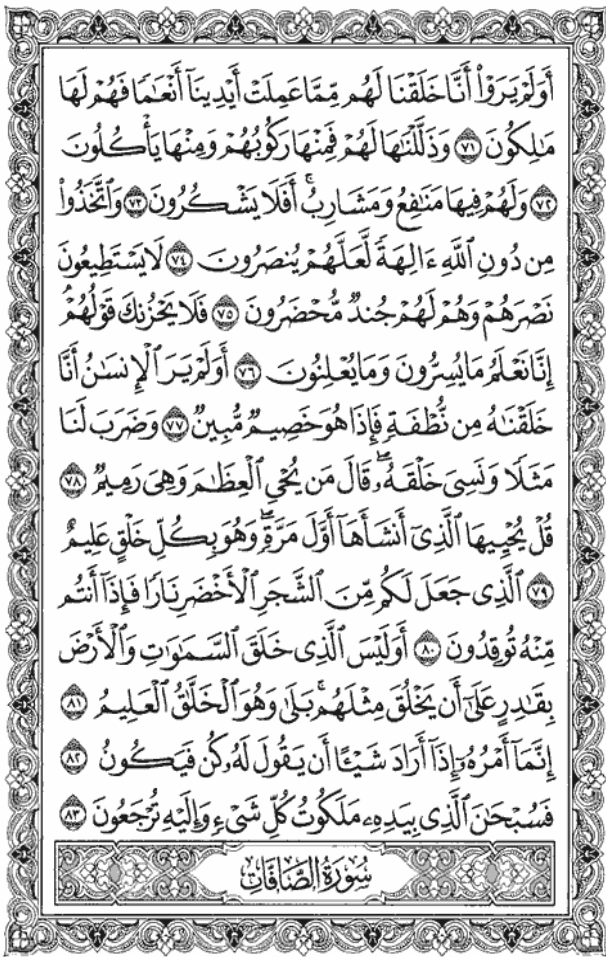 أَوَلَمْ يَرَوْا۟ أَنَّا خَلَقْنَا لَهُم مِّمَّا عَمِلَتْ أَيْدِينَآ أَنْعَـٰمًا فَهُمْ لَهَا
مَـٰلِكُونَ ٧١ وَذَلَّلْنَـٰهَا لَهُمْ فَمِنْهَا رَكُوبُهُمْ وَمِنْهَا يَأْكُلُونَ
٧٢ وَلَهُمْ فِيهَا مَنَـٰفِعُ وَمَشَارِبُ ۚ أَفَلَا يَشْكُرُونَ ٧٣ وَٱتَّخَذُوا۟
مِن دُونِ ٱللَّهِ ءَالِهَةً لَّعَلَّهُمْ يُنصَرُونَ ٧٤ لَا يَسْتَطِيعُونَ
نَصْرَهُمْ وَهُمْ لَهُمْ جُندٌ مُّحْضَرُونَ ٧٥ فَلَا يَحْزُنكَ قَوْلُهُمْ ۘ
إِنَّا نَعْلَمُ مَا يُسِرُّونَ وَمَا يُعْلِنُونَ ٧٦ أَوَلَمْ يَرَ ٱلْإِنسَـٰنُ أَنَّا
خَلَقْنَـٰهُ مِن نُّطْفَةٍ فَإِذَا هُوَ خَصِيمٌ مُّبِينٌ ٧٧ وَضَرَبَ لَنَا
مَثَلًا وَنَسِىَ خَلْقَهُۥ ۖ قَالَ مَن يُحْىِ ٱلْعِظَـٰمَ وَهِىَ رَمِيمٌ ٧٨
قُلْ يُحْيِيهَا ٱلَّذِىٓ أَنشَأَهَآ أَوَّلَ مَرَّةٍ ۖ وَهُوَ بِكُلِّ خَلْقٍ عَلِيمٌ
٧٩ ٱلَّذِى جَعَلَ لَكُم مِّنَ ٱلشَّجَرِ ٱلْأَخْضَرِ نَارًا فَإِذَآ أَنتُم
مِّنْهُ تُوقِدُونَ ٨٠ أَوَلَيْسَ ٱلَّذِى خَلَقَ ٱلسَّمَـٰوَٰتِ وَٱلْأَرْضَ
بِقَـٰدِرٍ عَلَىٰٓ أَن يَخْلُقَ مِثْلَهُم ۚ بَلَىٰ وَهُوَ ٱلْخَلَّـٰقُ ٱلْعَلِيمُ ٨١
إِنَّمَآ أَمْرُهُۥٓ إِذَآ أَرَادَ شَيْـًٔا أَن يَقُولَ لَهُۥ كُن فَيَكُونُ ٨٢
فَسُبْحَـٰنَ ٱلَّذِى بِيَدِهِۦ مَلَكُوتُ كُلِّ شَىْءٍ وَإِلَيْهِ تُرْجَعُونَ ٨٣
سُورَةُ الصَّافَّاتِ